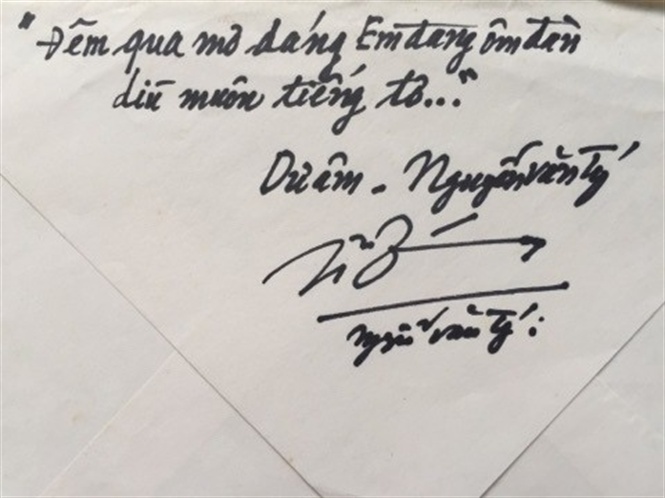 "Đêm qua mơ dáng Em đang ôm đàn
dìu muôn tiếng tơ..."
Dư âm - Nguyễn Văn Tý
Nguyễn Văn Tý